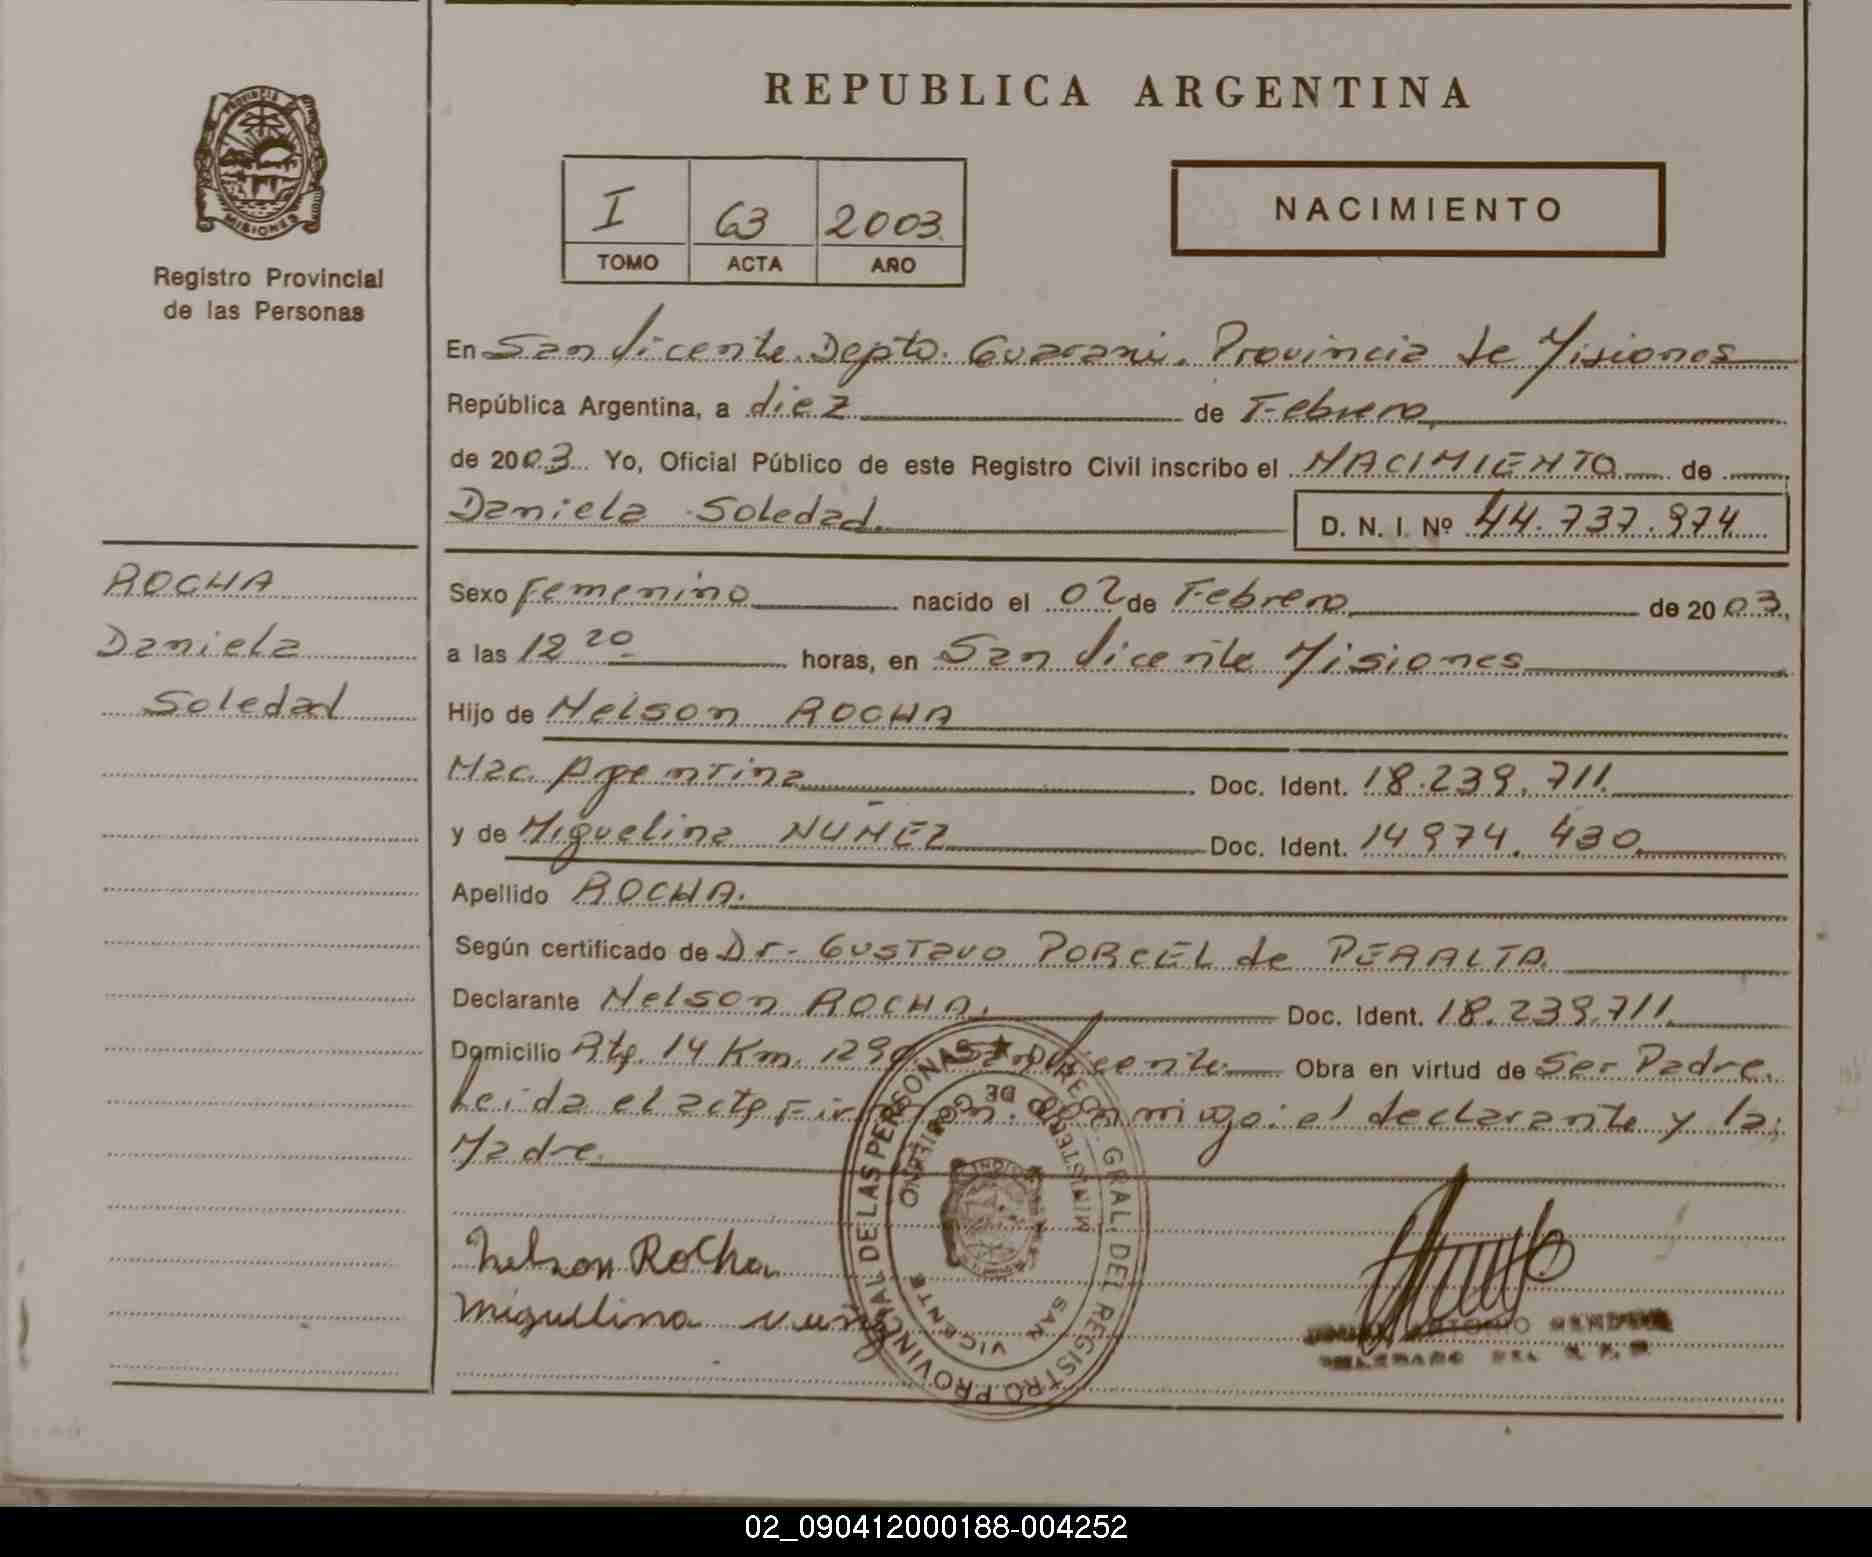 PROVINCIA DE
MISIONES
Registro Provincial
de las Personas
ROCHA
Daniela
Soledad
REPUBLICA ARGENTINA
I 63 2003
TOMO ACTA AÑO
NACIMIENTO
En San Vicente. Depto. Guarani. Provincia de Misiones
República Argentina, a diez de Febrero
de 2003 Yo, Oficial Público de este Registro Civil inscribo el NACIMIENTO de
Daniela Soledad. D. N. I. Nº 44.737.974
Sexo femenino nacido el 02 de Febrero de 2003,
a las 12 20 horas, en San Vicente Misiones
Hijo de Nelson ROCHA
Nac. Argentina Doc. Ident. 18.239.711.
y de Miguelina NUÑEZ Doc. Ident. 14974.430.
Apellido ROCHA.
Según certificado de Dr- Gustavo PORCEL de PERALTA.
Declarante Nelson ROCHA. Doc. Ident. 18.239.711.
Domicilio Rta. 14 Km. San Vicente Obra en virtud de Ser Padre.
Leida el acta Firman. Conmigo: el declarante y la;
Madre.
Nelson Rocha
Miguelina nuñez
REG. GRAL. DEL REGISTRO PROVINCIAL DE LAS PERSONAS
MINISTERIO DE GOBIERNO
SAN VICENTE
ANTONIO
DELEGADO DEL R. P. P.
02_090412000188-004252